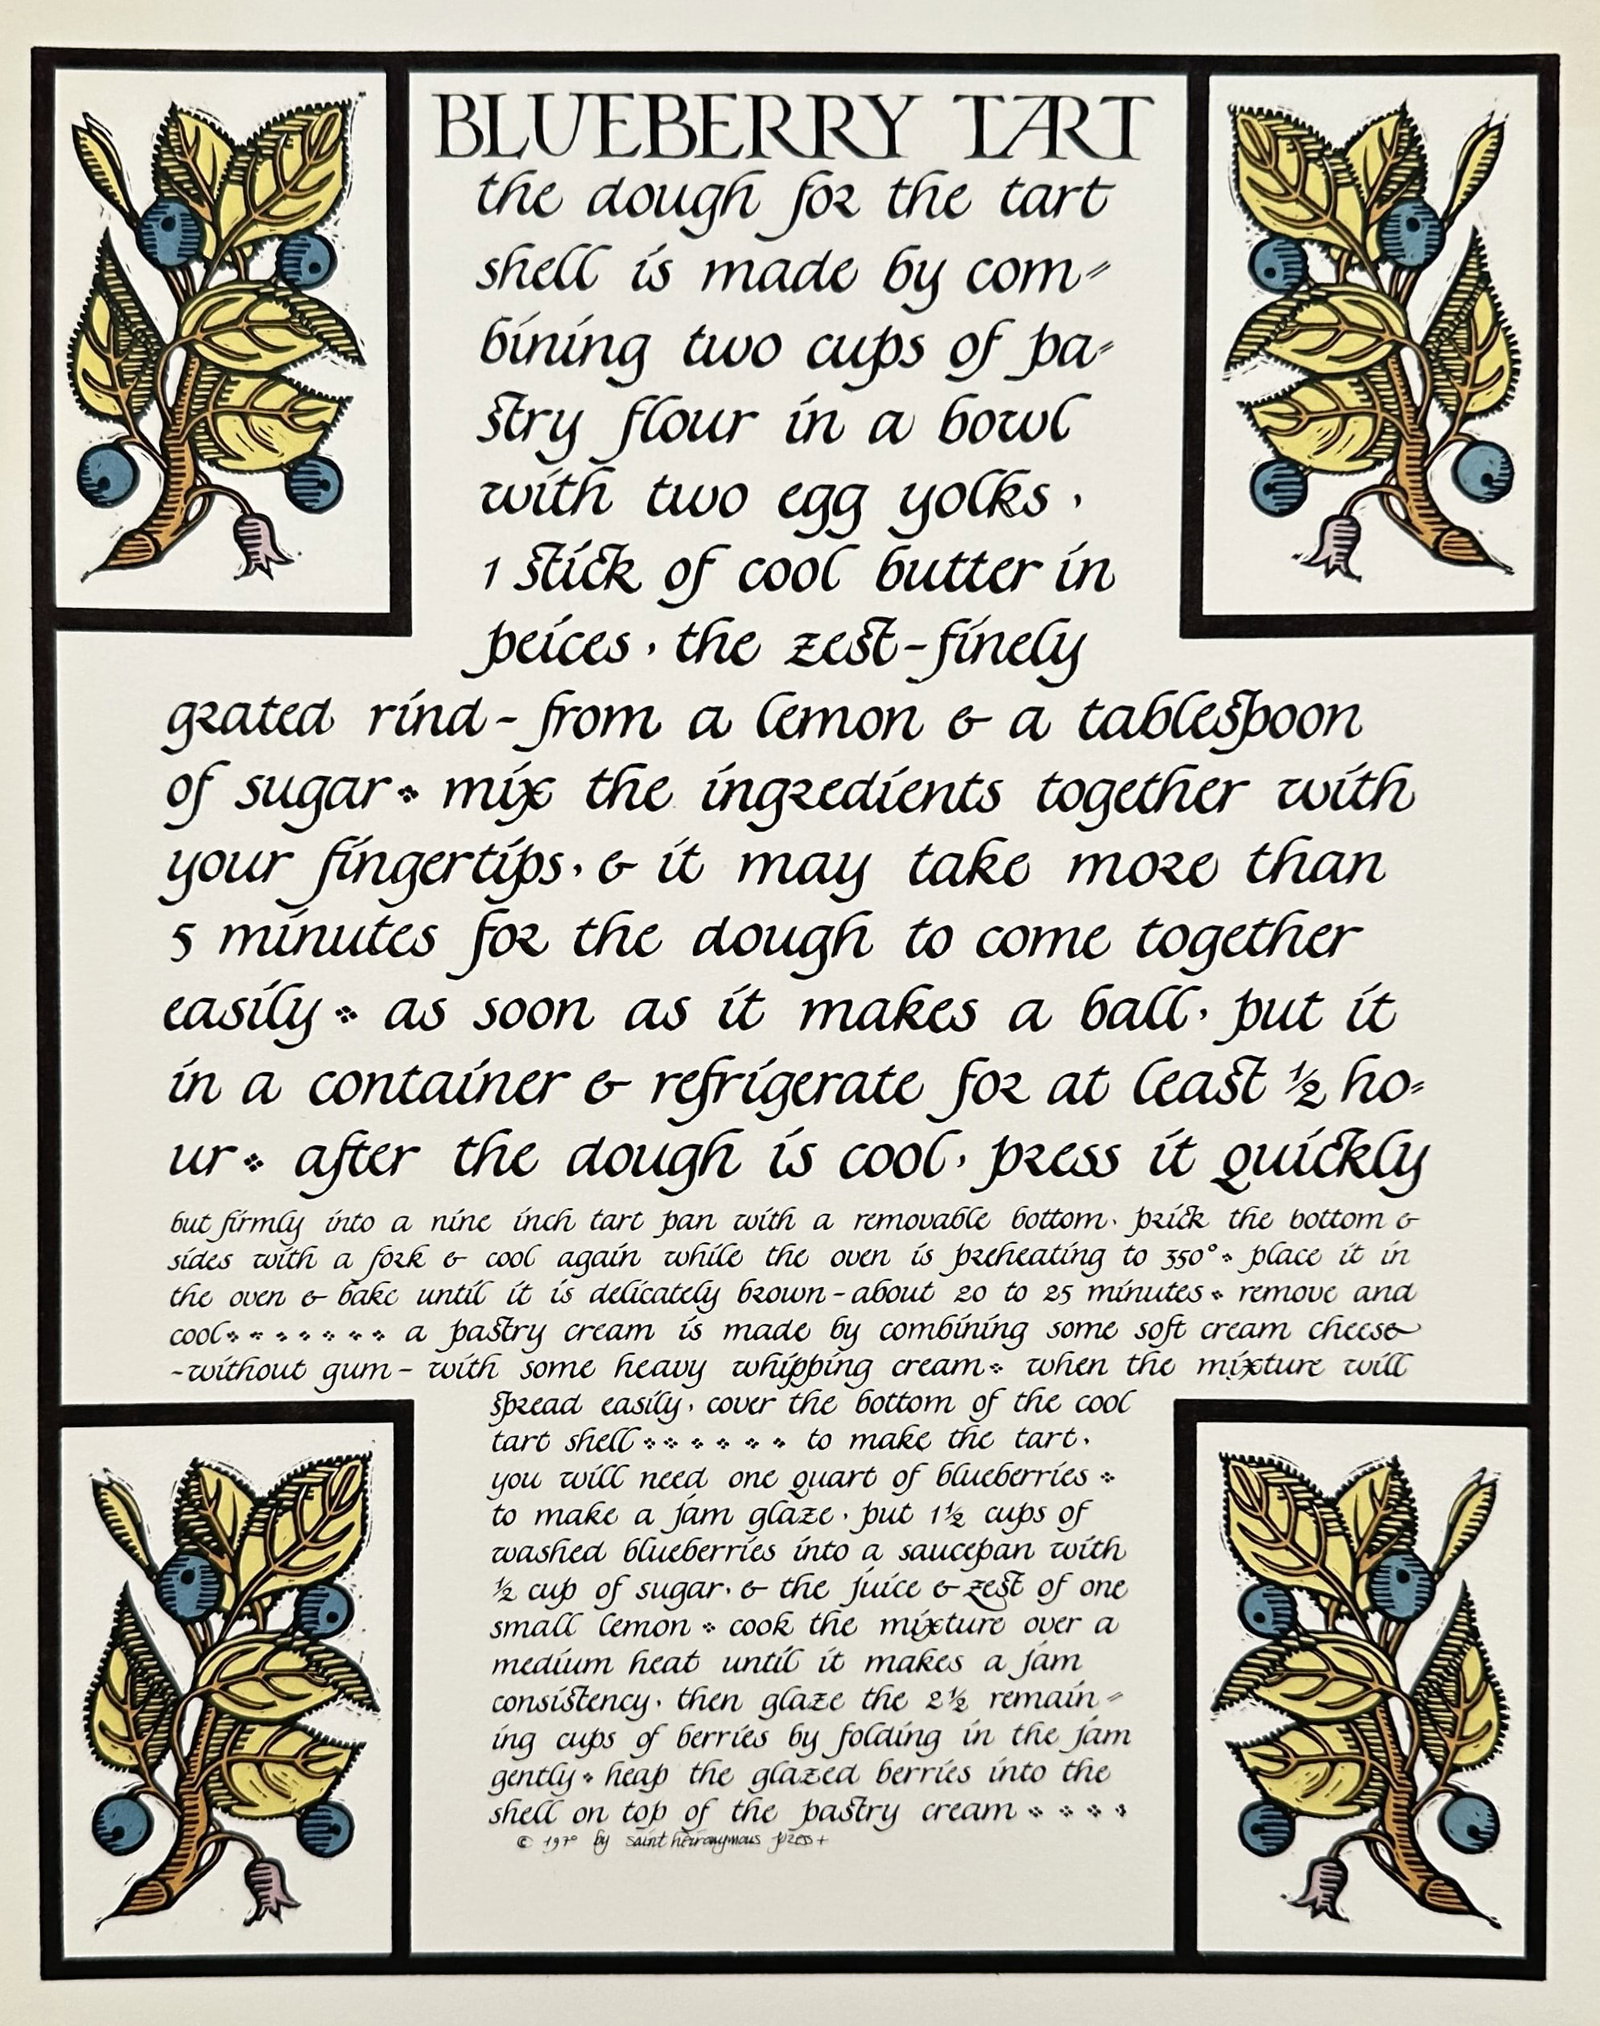 BLUEBERRY TART
the dough for the tart
shell is made by com=
bining two cups of pa=
stry flour in a bowl
with two egg yolks,
1 stick of cool butter in
peices, the zest-finely
grated rind-from a lemon & a tablespoon
of sugar❖ mix the ingredients together with
your fingertips, & it may take more than
5 minutes for the dough to come together
easily❖ as soon as it makes a ball, put it
in a container & refrigerate for at least ½ ho=
ur❖ after the dough is cool, press it quickly
but firmly into a nine inch tart pan with a removable bottom, prick the bottom &
sides with a fork & cool again while the oven is preheating to 350°❖ place it in
the oven & bake until it is delicately brown-about 20 to 25 minutes❖ remove and
cool❖❖❖❖❖❖❖ a pastry cream is made by combining some soft cream cheese
-without gum- with some heavy whipping cream❖ when the mixture will
spread easily, cover the bottom of the cool
tart shell❖❖❖❖❖❖ to make the tart,
you will need one quart of blueberries❖
to make a jam glaze, put 1½ cups of
washed blueberries into a saucepan with
½ cup of sugar, & the juice & zest of one
small lemon❖ cook the mixture over a
medium heat until it makes a jam
consistency, then glaze the 2½ remain=
ing cups of berries by folding in the jam
gently❖ heap the glazed berries into the
shell on top of the pastry cream❖❖❖❖
© 1970 by saint heironymous press+